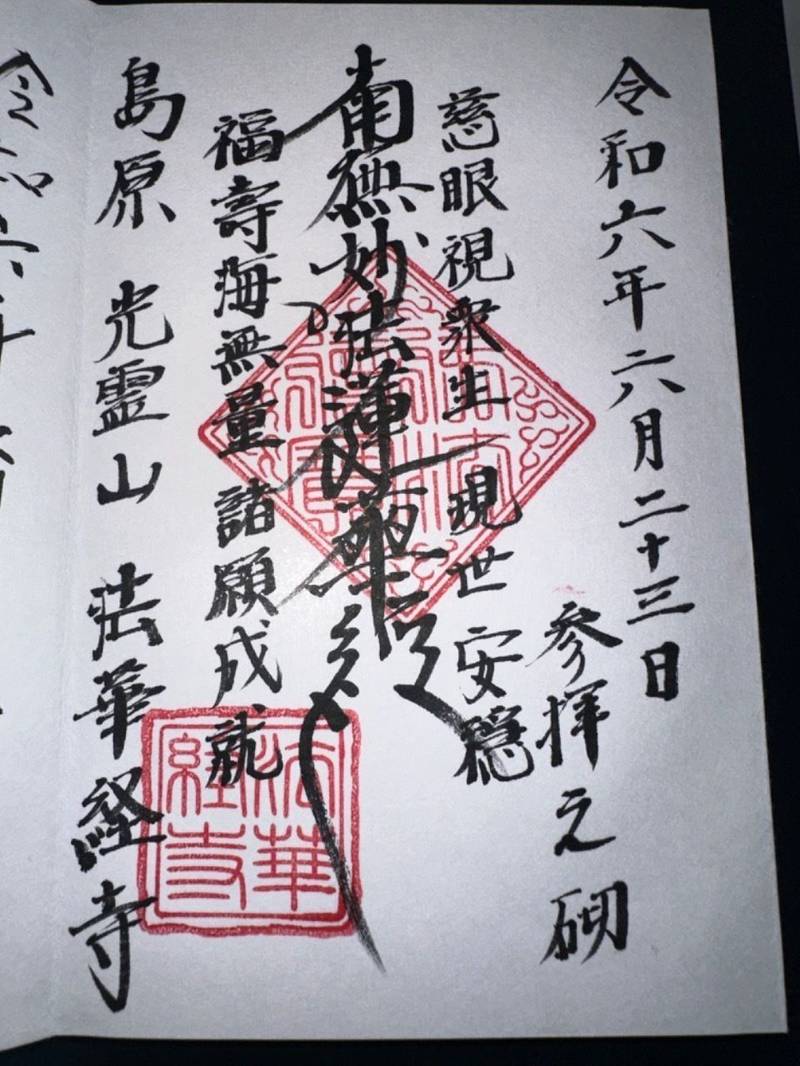 令和六年六月二十三日
参拝之砌
慈眼視衆生 現世安穏
南無妙法蓮華経
福壽海無量 諸願成就
島原 光霊山 法華経寺
法華経寺